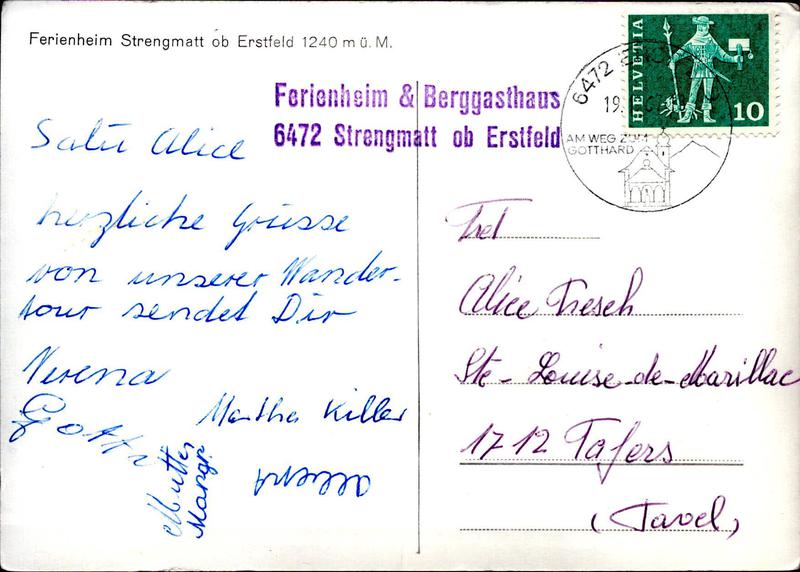 Ferienheim Strengmatt ob Erstfeld 1240 m ü. M.
Ferienheim & Berggasthaus
6472 Strengmatt ob Erstfeld
HELVETIA
10
6472
19.
AM WEG ZUM
GOTTHARD
Salü Alice
herzliche Grüsse
von unserer Wander-
tour sendet Dir
Verena
Martha Killer
Mutter
Frl
Alice Tresch
Ste-Louise-de-Marillac
1712 Tafers
(Tavel)